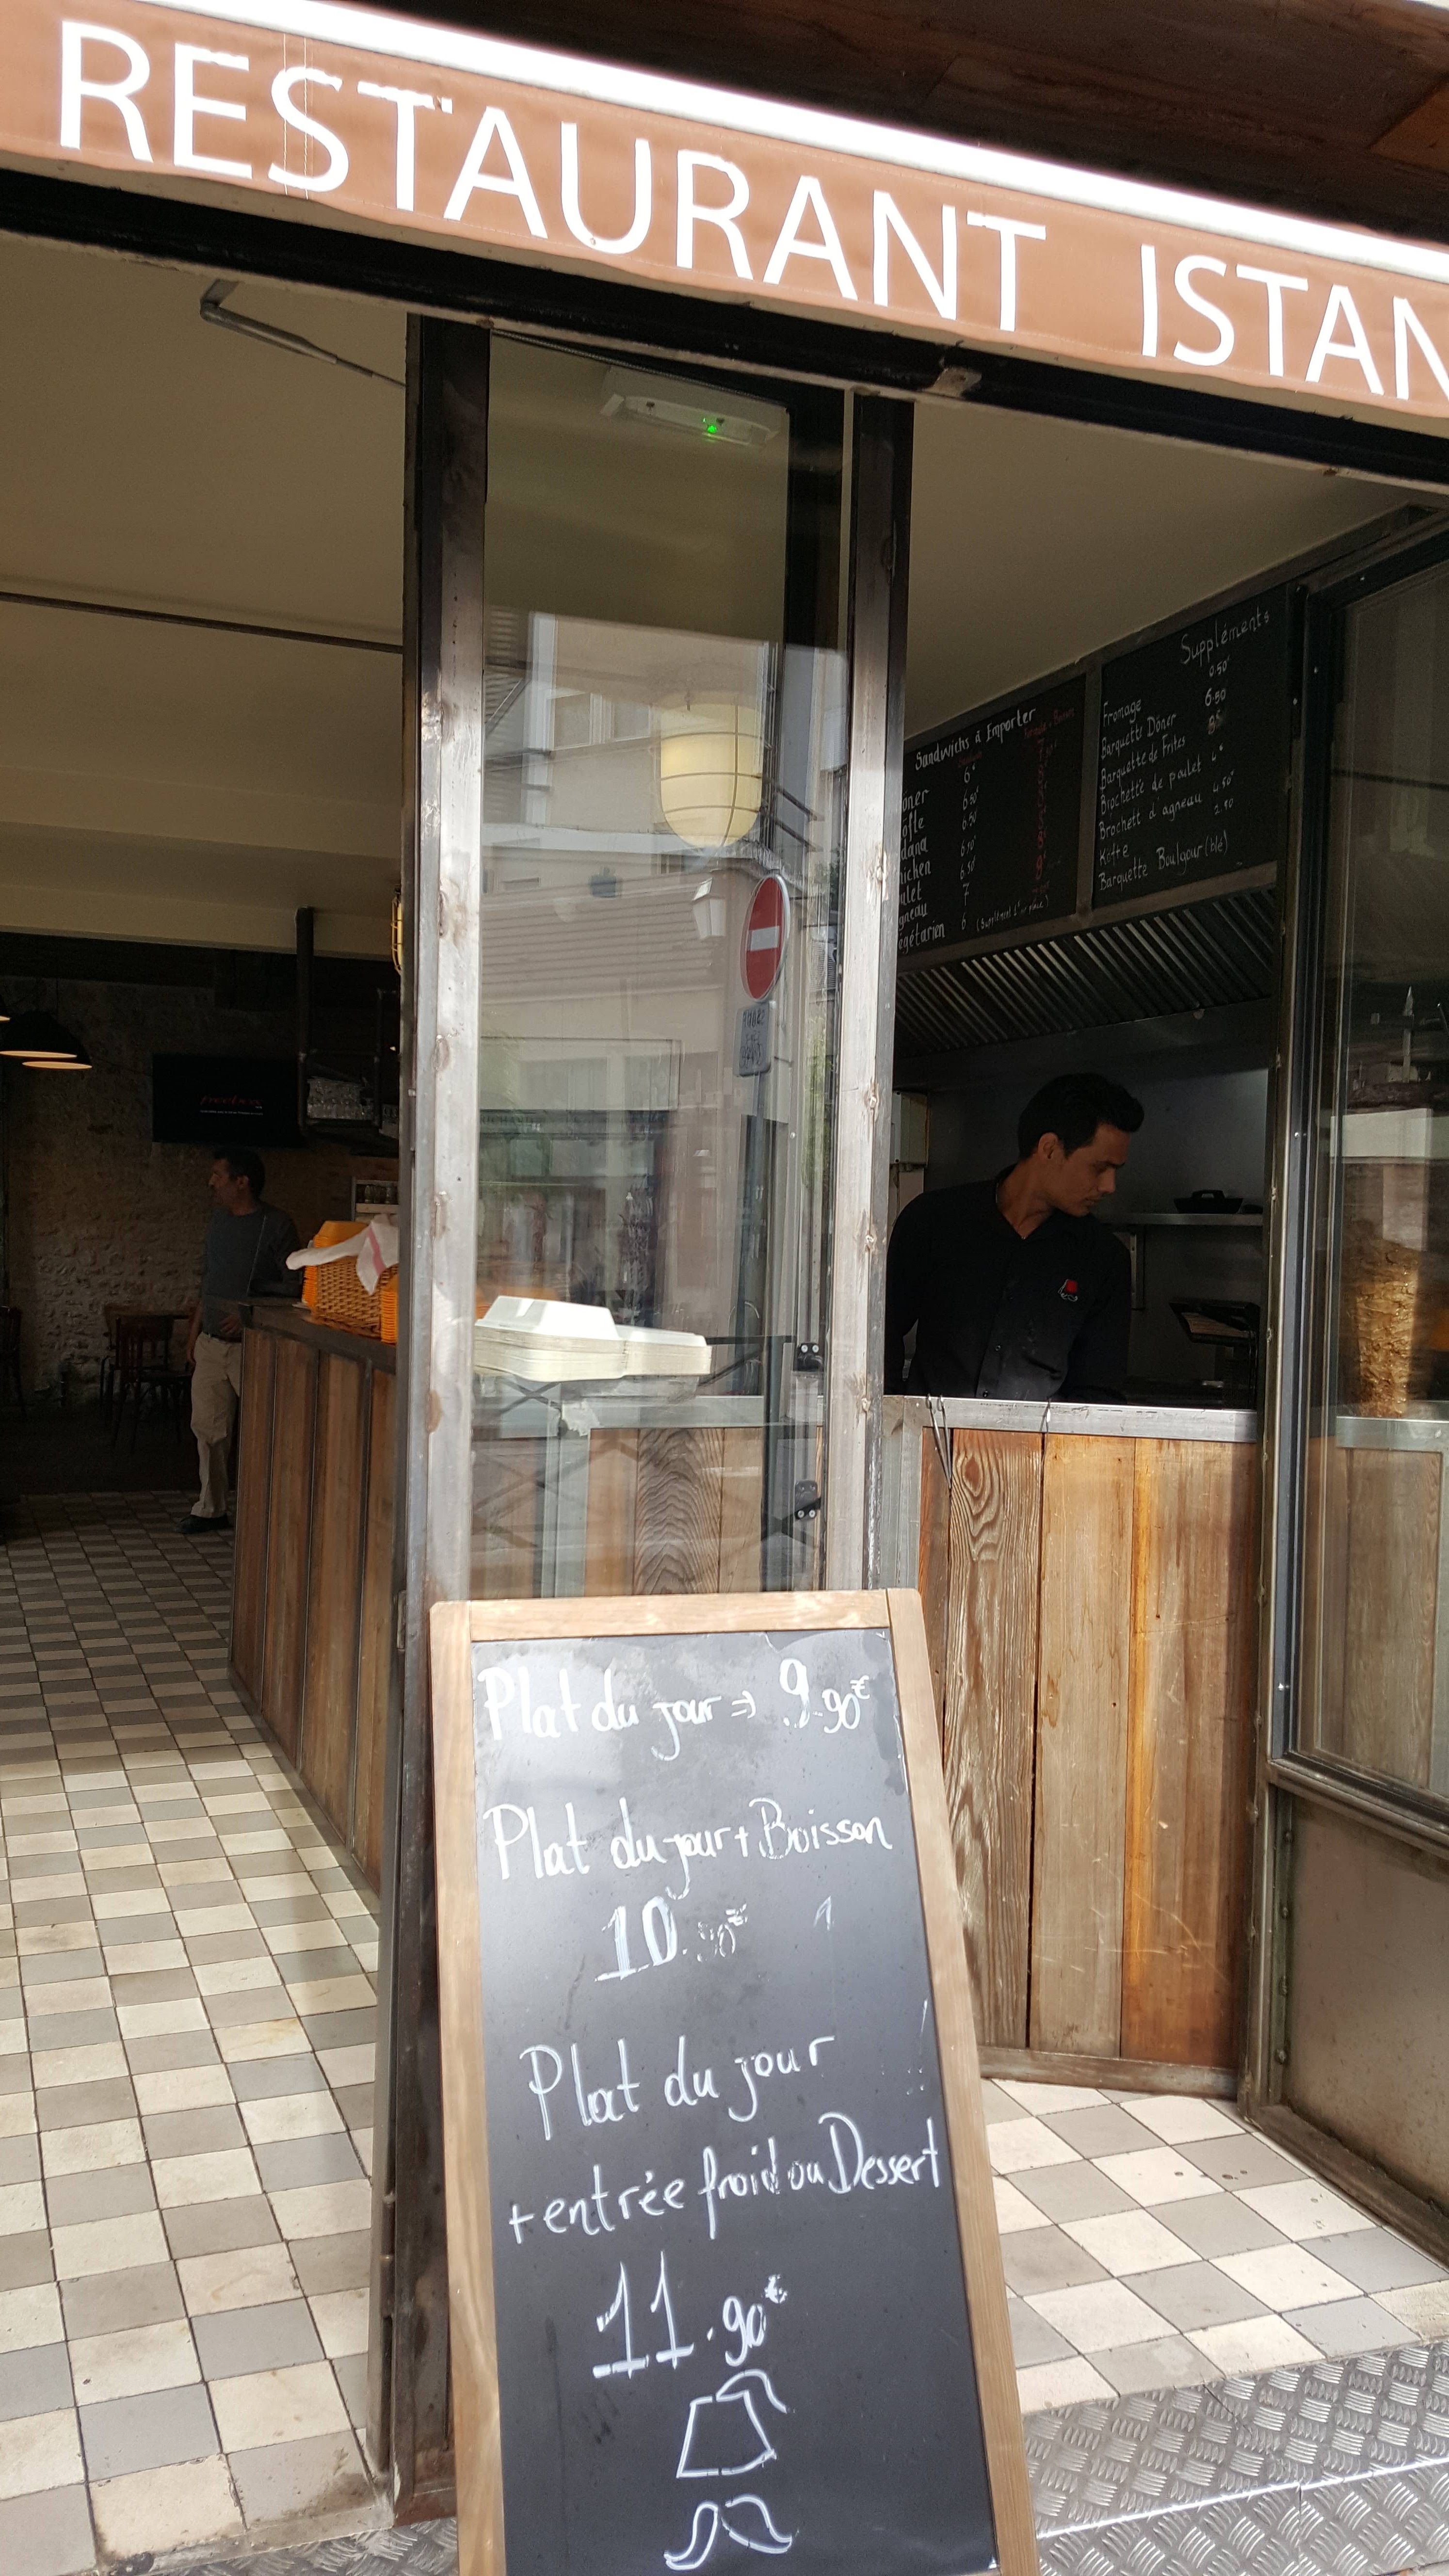 RESTAURANT ISTAN
Suppléments
0.50€
Fromage
6.50
Barquette Döner
Barquette de Frites
Brochette de poulet
6€
Brochett d'agneau
4.50€
Köfte
2.90
Barquette Boulgour (blé)
Sandwichs à Emporter
6€
öner 6.50€
öfte 6.50
dana
hicken 6.50
ulet 7
gneau 6
égétarien
freebox
Plat du jour => 9.90€
Plat du jour + Boisson
10.90€
Plat du jour
+ entrée froid ou Dessert
11.90€